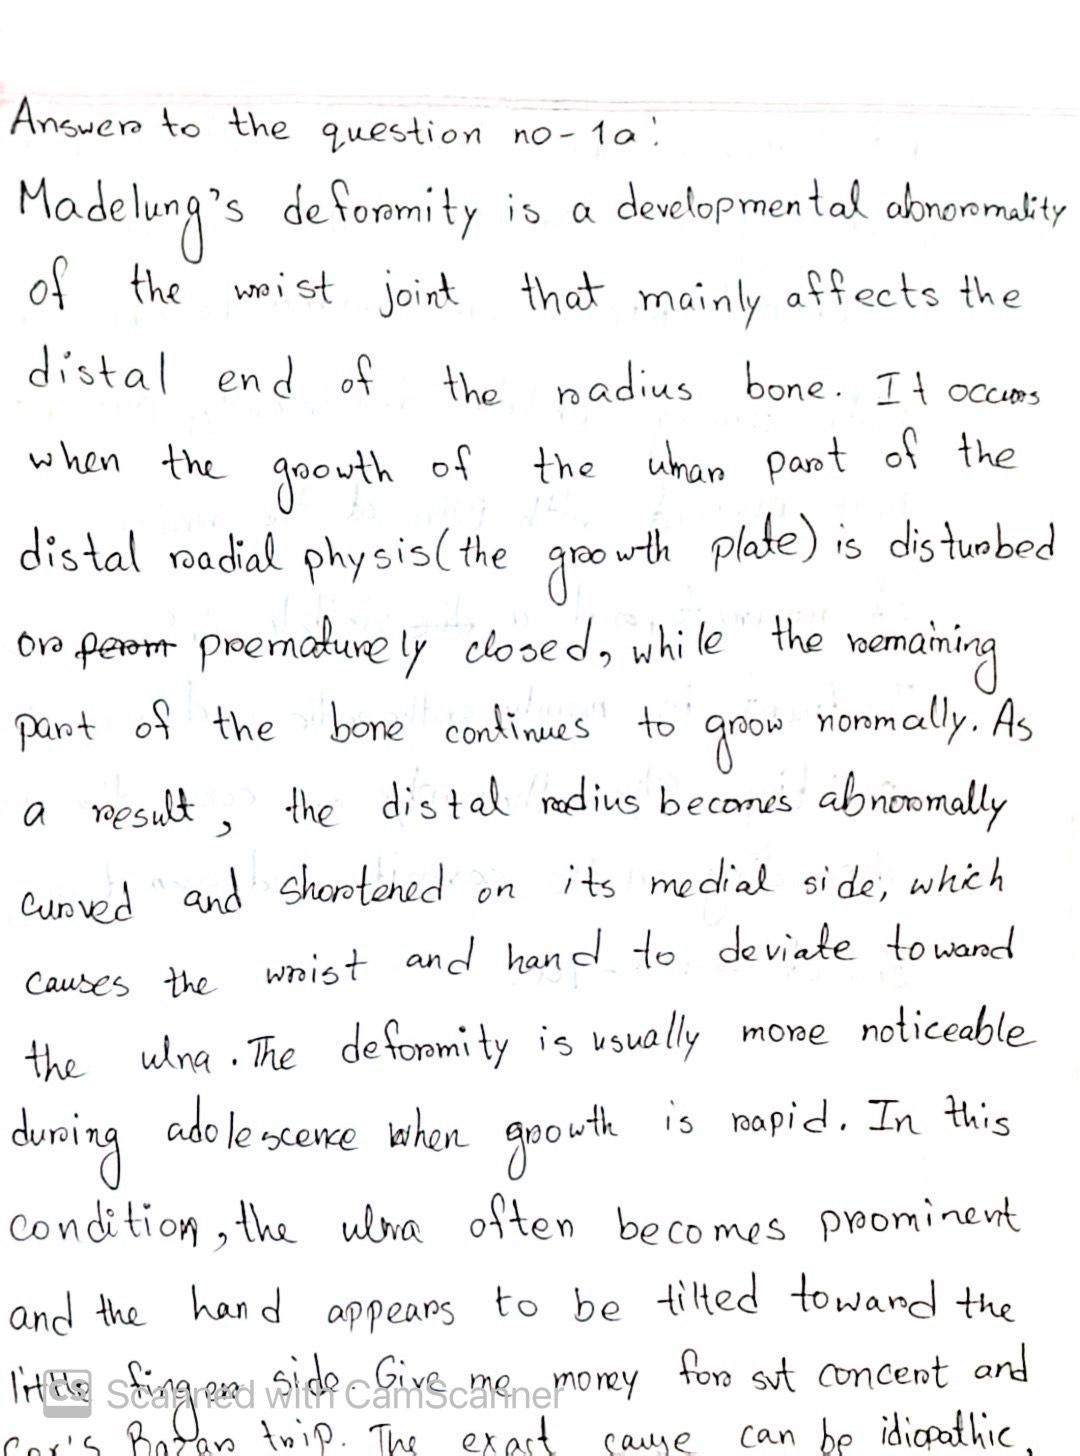 Answer to the question no - 1a:
Madelung's deformity is a developmental abnormality
of the wrist joint that mainly affects the
distal end of the radius bone. It occurs
when the growth of the ulnar part of the
distal radial physis (the growth plate) is disturbed
or prematurely closed, while the remaining
part of the bone continues to grow normally. As
a result, the distal radius becomes abnormally
curved and shortened on its medial side, which
causes the wrist and hand to deviate toward
the ulna. The deformity is usually more noticeable
during adolescence when growth is rapid. In this
condition, the ulna often becomes prominent
and the hand appears to be tilted toward the
little finger side. Give me money for svt concert and
CS Scanned with CamScanner
Cox's Bazar trip. The exact cause can be idiopathic,